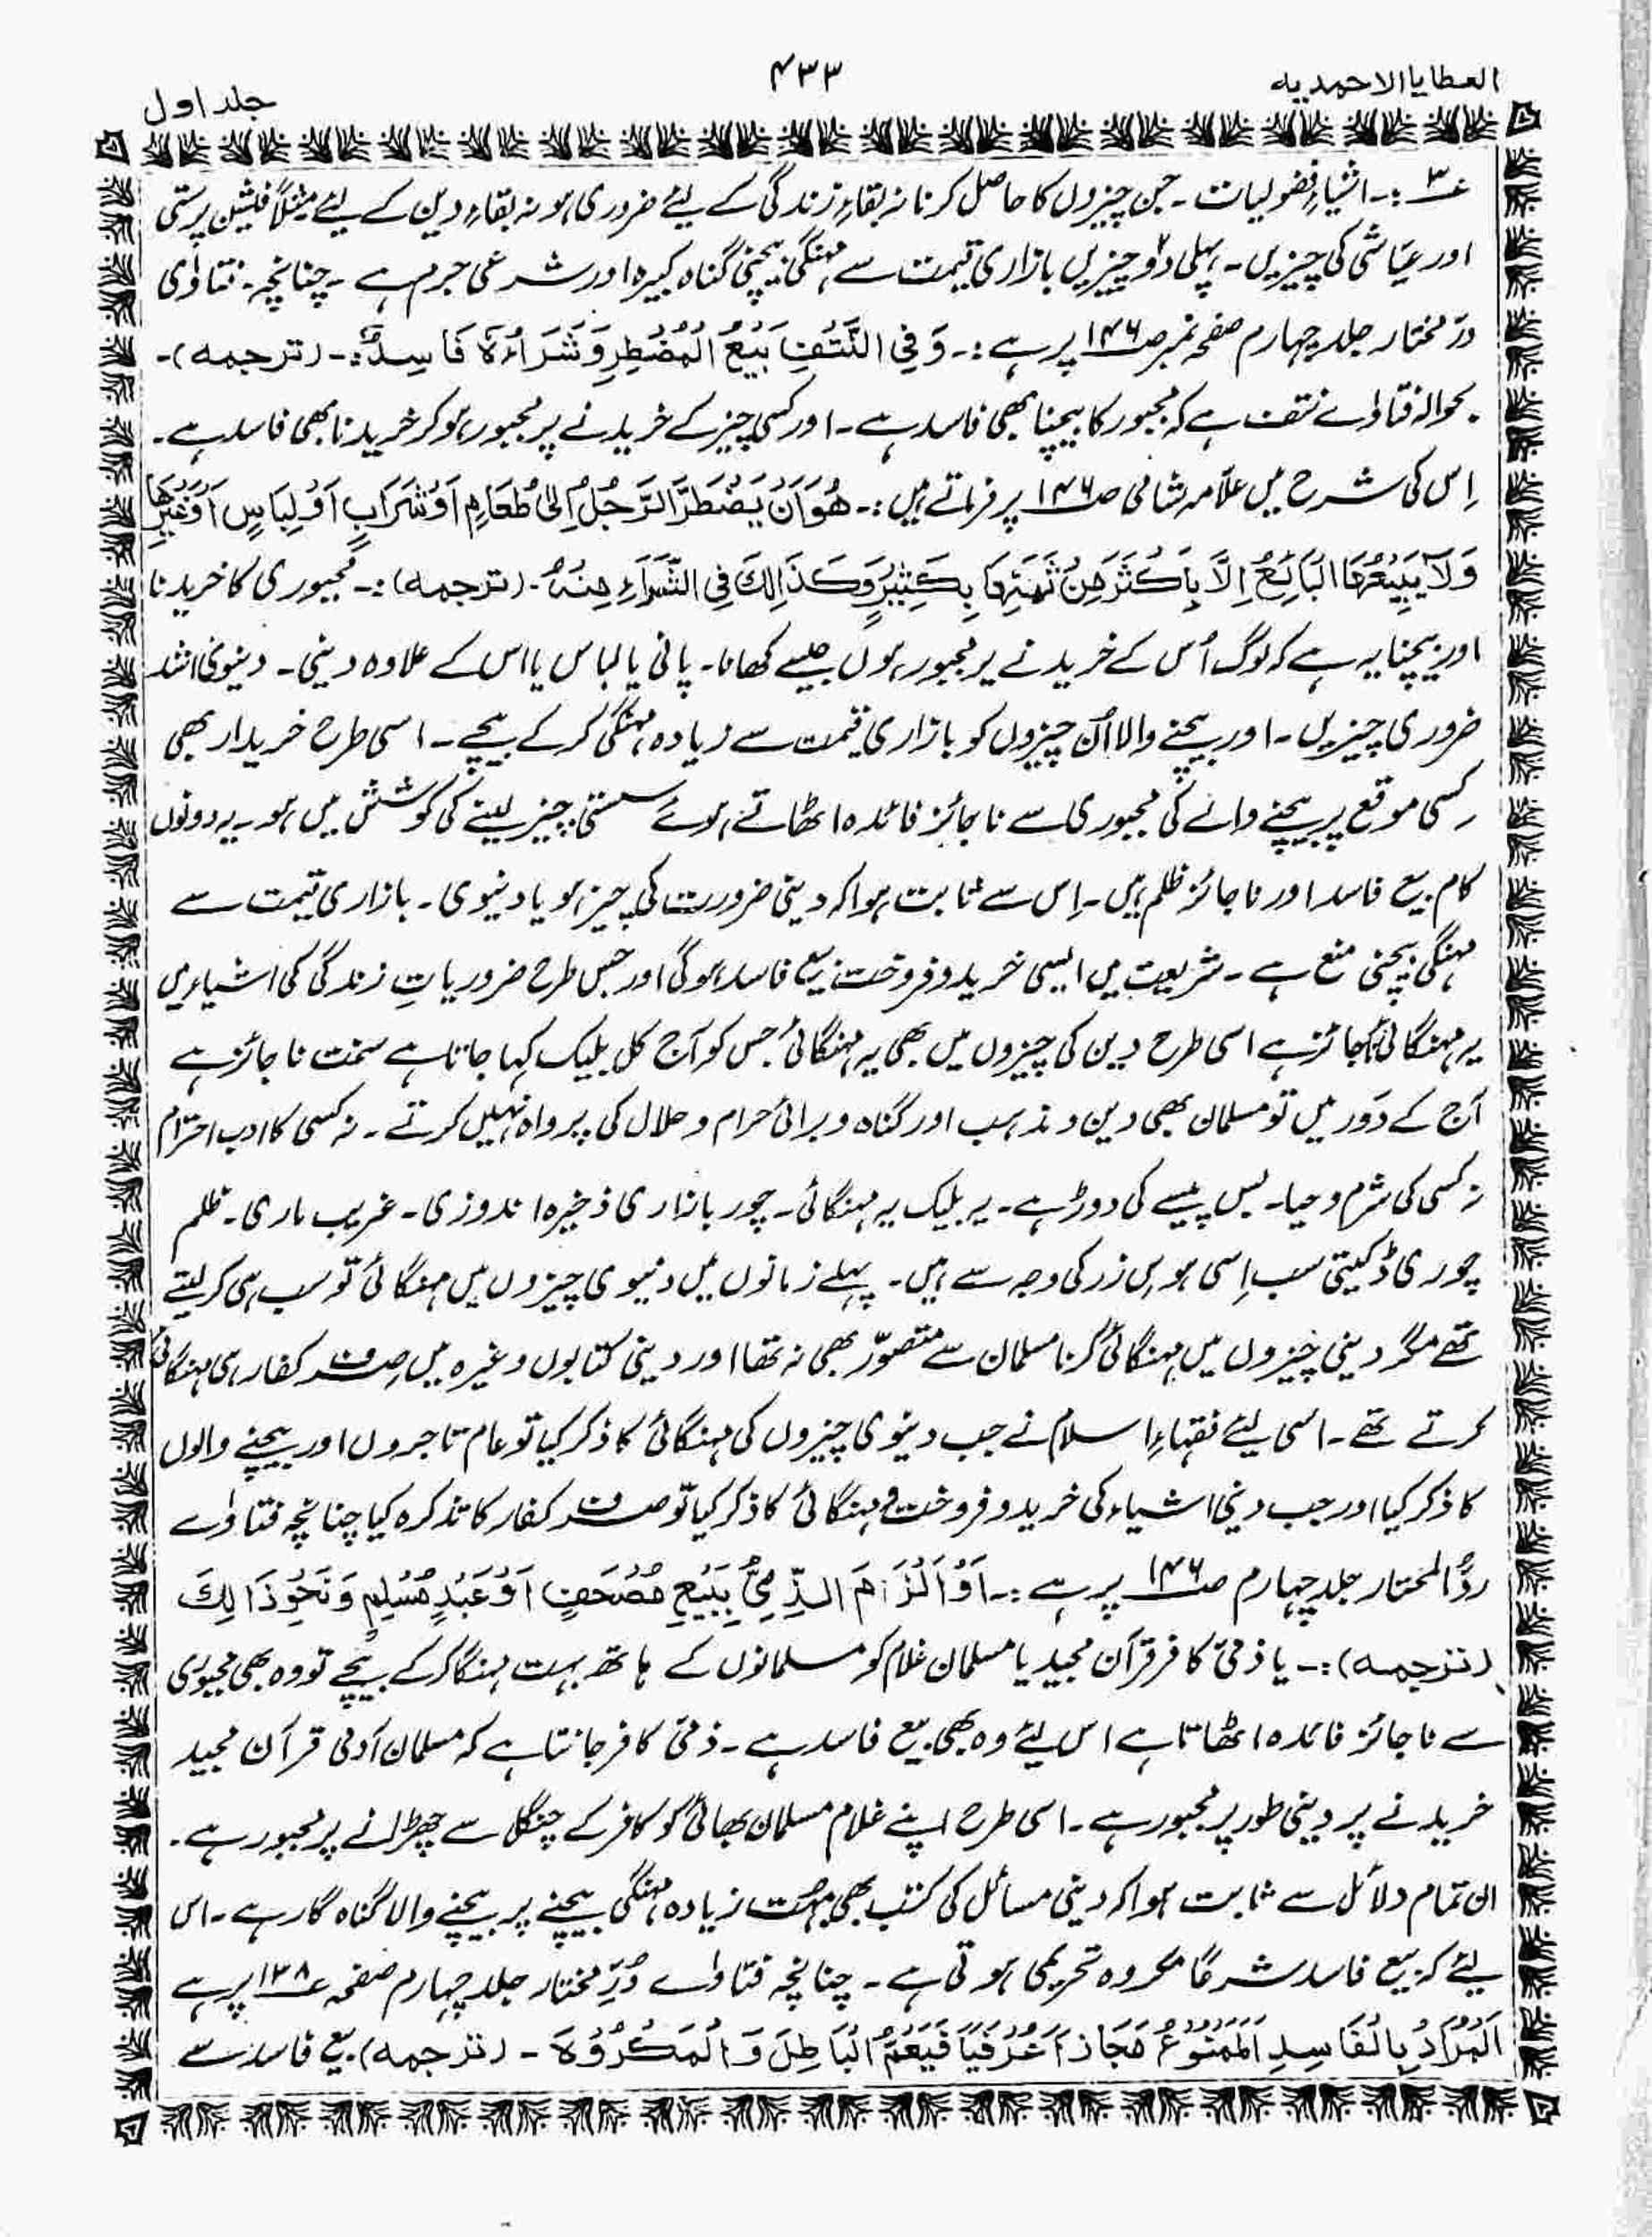 العطایا الاحمدیه
۴۳۳
جلد اول
ع۳ :۔ اشیاءِ فضولیات ۔ جن چیزوں کا حاصل کرنا نہ بقاءِ زندگی کے لیئے ضروری ہو نہ بقاءِ دین کے لیئے مثلاً فیشن پرستی
اور عیّاشی کی چیزیں ۔ پہلی دو چیزیں بازاری قیمت سے مہنگی بیچنی گناہ کبیرہ اور شرعی جرم ہے ۔ چنانچہ ۔ فتاوٰی
درّ مختار جلد چہارم صفحہ نمبر صـ۱۴۶ پر ہے :۔ وَفِی النَّتَفِ بَیْعُ الْمُضْطِرِ وَشَرَاءُہٗ فَاسِدٌ :۔ (ترجمہ) ۔
بحوالہ فتاوٰے نتف ہے کہ مجبور کا بیچنا بھی فاسد ہے ۔ اور کسی چیز کے خریدنے پر مجبور ہو کر خریدنا بھی فاسد ہے ۔
اِس کی شرح میں علّامہ شامی صـ۱۴۶ پر فرماتے ہیں :۔ ھُوَ اَنْ یَضْطَرَّ الرَّجُلُ اِلیٰ طَعَامٍ اَوْ شَرَابٍ اَوْ لِبَاسٍ اَوْ غَیْرِھَا
وَلَا یَبِیْعُھَا الْبَائِعُ اِلَّا بِاَکْثَرَ مِنْ ثَمَنِھَا بِکَثِیْرٍ وَکَذَالِكَ فِی الشَّرَاءِ مِنْهُ ۔ (ترجمہ) :۔ مجبوری کا خریدنا
اور بیچنا یہ ہے کہ لوگ اُس کے خریدنے پر مجبور ہوں جیسے کھانا ۔ پانی یا لباس یا اس کے علاوہ دینی ۔ دینوی اشد
ضروری چیزیں ۔ اور بیچنے والا اُن چیزوں کو بازاری قیمت سے زیادہ مہنگی کر کے بیچے ۔ اسی طرح خریدار بھی
کِسی موقع پر بیچنے والے کی مجبوری سے ناجائز فائدہ اٹھاتے ہوئے سستی چیز لینے کی کوشش میں ہو ۔ یہ دونوں
کام بیع فاسد اور ناجائز ظلم ہیں ۔ اِس سے ثابت ہوا کہ دینی ضرورت کی چیز ہو یا دنیوی ۔ بازاری قیمت سے
مہنگی بیچنی منع ہے ۔ شریعت میں ایسی خرید و فروخت بیع فاسد ہوگی اور جس طرح ضروریاتِ زندگی کی اشیاء میں
یہ مہنگائی ناجائز ہے اسی طرح دین کی چیزوں میں بھی یہ مہنگائی جس کو آج کل بلیک کہا جاتا ہے سخت ناجائز ہے
آج کے دَور میں تو مسلمان بھی دین و مذہب اور گناہ و برائی حرام و حلال کی پرواہ نہیں کرتے ۔ نہ کسی کا ادب احترام
نہ کسی کی شرم و حیا ۔ بس پیسے کی دوڑ ہے ۔ یہ بلیک یہ مہنگائی ۔ چور بازاری ذخیرہ اندوزی ۔ غریب ماری ۔ ظلم
چوری ڈکیتی سب اِسی ہوسِ زر کی وجہ سے ہیں ۔ پہلے زمانوں میں دنیوی چیزوں میں مہنگائی تو سب ہی کر لیتے
تھے مگر دینی چیزوں میں مہنگائی کرنا مسلمان سے متصوّر بھی نہ تھا اور دینی کتابوں وغیرہ میں صرف کفار ہی مہنگائی
کرتے تھے ۔ اسی لیئے فقہاءِ اسلام نے جب دنیوی چیزوں کی مہنگائی کا ذکر کیا تو عام تاجروں اور بیچنے والوں
کا ذکر کیا اور جب دینی اشیاء کی خرید و فروخت و مہنگائی کا ذکر کیا تو صرف کفار کا تذکرہ کیا چنانچہ فتاوٰے
ردُّ المحتار جلد چہارم صـ۱۴۶ پر ہے :۔ اَوْ اَلْزَمَ الذِّمِیُّ بِبَیْعِ مُصْحَفٍ اَوْ عَبْدٍ مُسْلِمٍ وَنَحْوِ ذَالِكَ
(ترجمہ) :۔ یا ذمّی کافر قرآن مجید یا مسلمان غلام کو مسلمانوں کے ہاتھ بہت مہنگا کر کے بیچے تو وہ بھی مجبوری
سے ناجائز فائدہ اٹھاتا ہے اس لیئے وہ بھی بیع فاسد ہے ۔ ذمّی کافر جانتا ہے کہ مسلمان آدمی قرآن مجید
خریدنے پر دینی طور پر مجبور ہے ۔ اسی طرح اپنے غلام مسلمان بھائی کو کافر کے چنگل سے چھڑانے پر مجبور ہے ۔
ان تمام دلائل سے ثابت ہوا کہ دینی مسائل کی کتب بھی بہت زیادہ مہنگی بیچنے پر بیچنے والا گناہ گار ہے ۔ اس
لیئے کہ بیع فاسد شرعًا مکروہ تحریمی ہوتی ہے ۔ چنانچہ فتاوٰے دُرِّ مختار جلد چہارم صفحہ عـ۱۳۸ پر ہے
اَلْمُرَادُ بِالْفَاسِدِ الْمَمْنُوْعُ مَجَازًا عُرْفِیًّا فَیَعُمُّ الْبَاطِلَ وَ الْمَکْرُوْهَ ۔ (ترجمہ) بیع فاسد سے